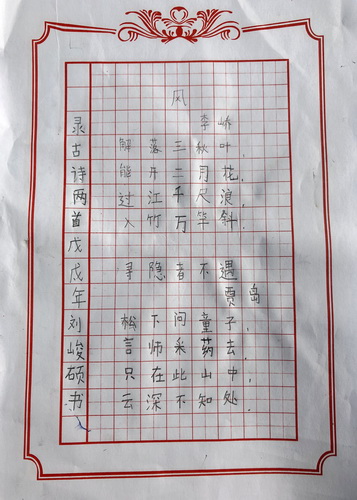 风
李峤
解落三秋叶，
能开二月花，
过江千尺浪，
入竹万竿斜，
寻隐者不遇
贾岛
松下问童子，
言师采药去，
只在此山中，
云深不知处，
录古诗两首戊戌年刘峻硕书